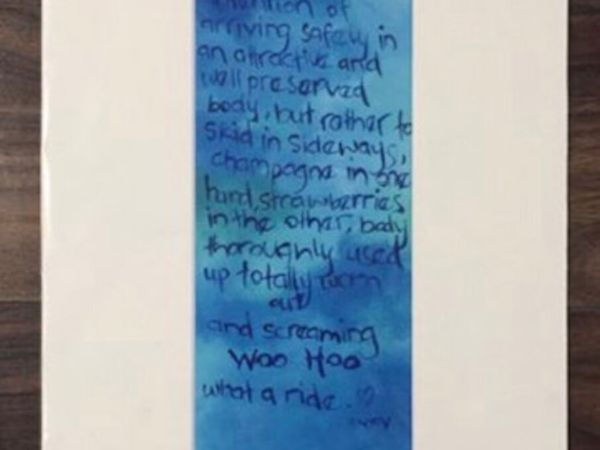 of
arriving safely in
an attractive and
well preserved
body, but rather to
skid in sideways,
champagne in one
hand, strawberries
in the other, body
thoroughly used
up totally worn
out
and screaming
WOO HOO
what a ride.